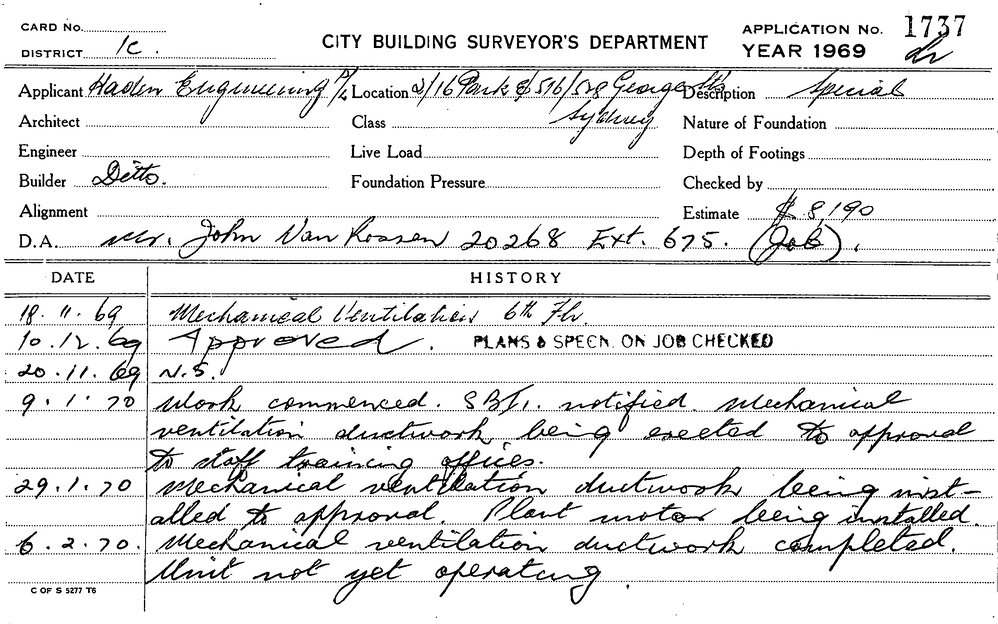 CARD No.
DISTRICT 1c.
CITY BUILDING SURVEYOR'S DEPARTMENT
APPLICATION No. 1737
YEAR 1969
Applicant Haden Engineering P/L Location 2/16 Park & 516/528 George Sts Sydney Description Special
Architect Class Nature of Foundation
Engineer Live Load Depth of Footings
Builder Ditto. Foundation Pressure Checked by
Alignment Estimate $8,190
D.A. Mr. John Van Rossen 20268 Ext. 675. (Job).
DATE HISTORY
18. 11. 69 Mechanical Ventilation 6th Flr.
10. 12. 69 Approved. PLANS & SPECN. ON JOB CHECKED
20. 11. 69 N.S.
9. 1. 70 Work commenced. notified. Mechanical
ventilation ductwork being erected to approval
to staff training offices.
29. 1. 70 Mechanical ventilation ductwork being inst-
alled to approval. Plant motor being installed.
6. 2. 70. Mechanical ventilation ductwork completed.
Unit not yet operating.
C OF S 5277 T6